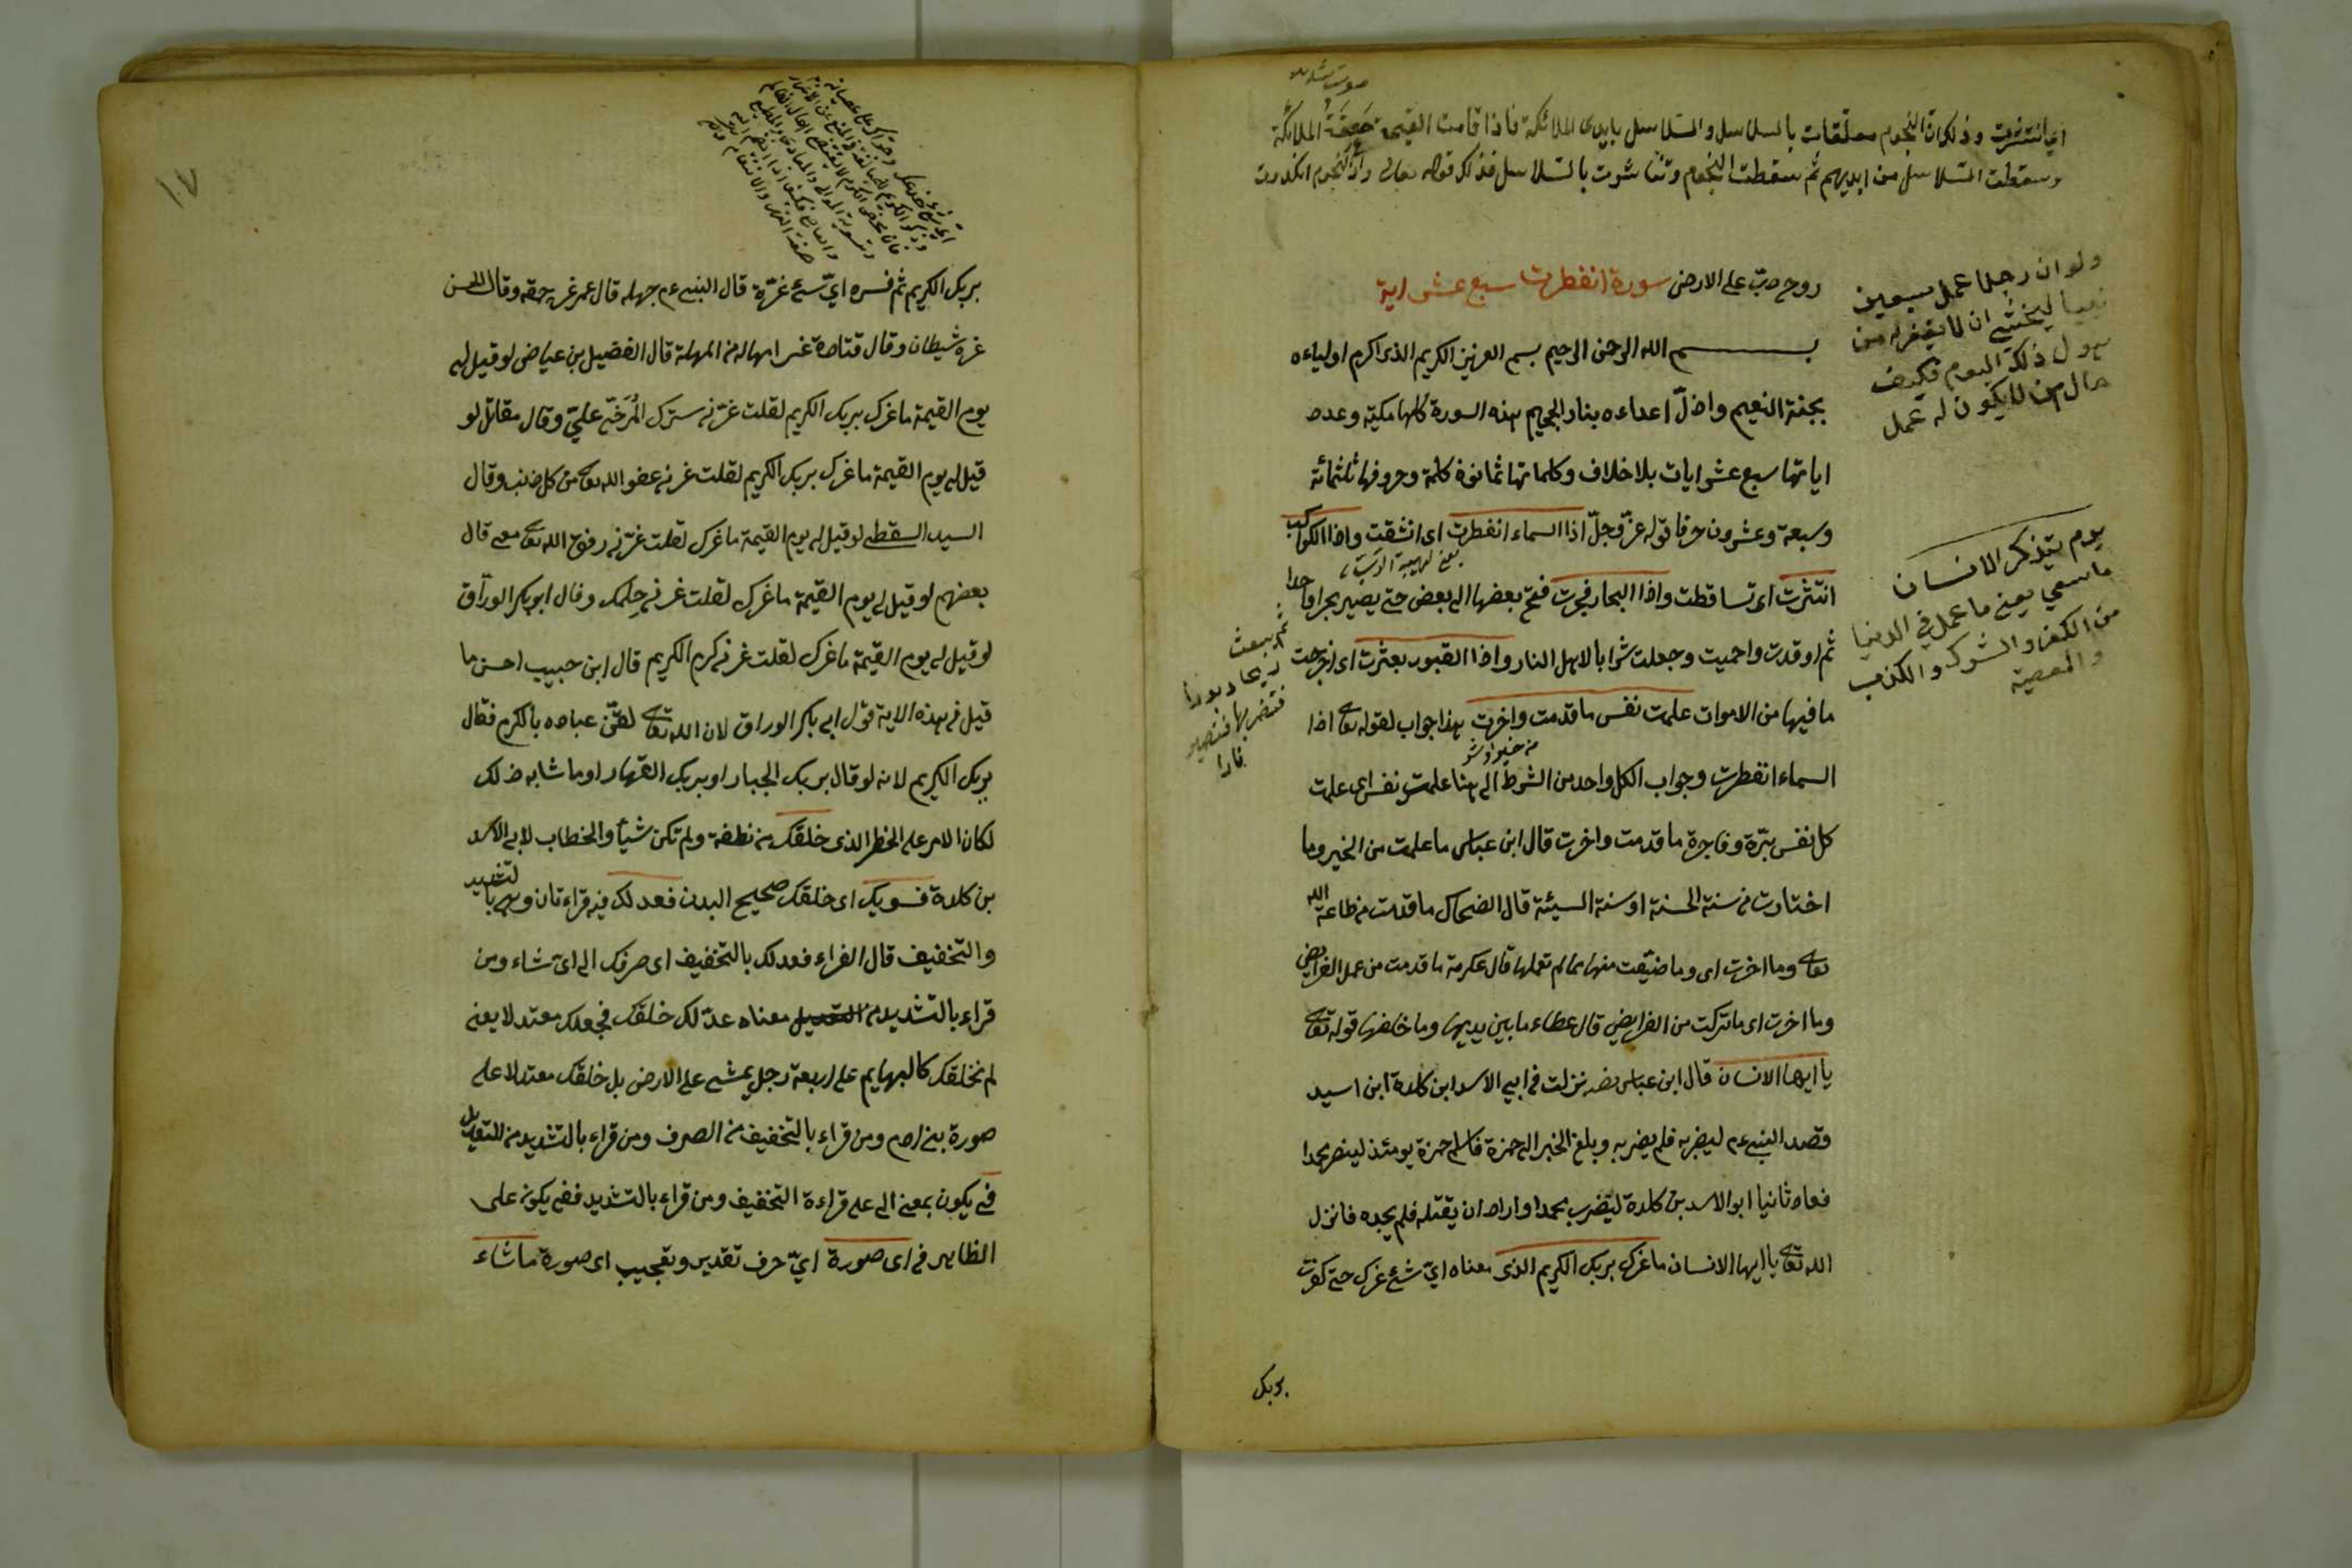 صوت شديد
اي انتشرت وذلك ان النجوم معلقات بالسلاسل والسلاسل بايدى الملائكة فاذا قامت القيمة صعقة الملائكة
وسقطت السلاسل من ايديهم ثم سقطت النجوم وتناثرت بالسلاسل فذلك قوله تعالى واذا النجوم انكدرت
روح دبّ على الارض سورة انفطرت سبع عشر اية
بسم الله الرحمن الرحيم بسم العزيز الكريم الذى اكرم اولياءه
بجنة النعيم واذلّ اعداءه بنار الجحيم هذه السورة كلها مكية وعدد
اياتها سبع عشر ايات بلا خلاف وكلماتها ثمانون كلمة وحروفها ثلثمائة
وسبعة وعشرون حرفا قوله عزّ وجلّ اذا السماء انفطرت اى انشقت واذا الكواكب
انتثرت اى تساقطت واذا البحار فجرت فتح بعضها الى بعض حتى يصير بحرا واحدا
ثم اوقدت واحميت وجعلت شرابا لاهل النار واذا القبور بعثرت اى اخرجت
ما فيها من الاموات علمت نفس ما قدمت واخرت هذا جواب لقوله تعا اذا
من خير او شر
السماء انفطرت وجواب الكل واحد من الشرط الى هنا علمت نفس اى علمت
كل نفس برّة وفاجرة ما قدمت واخرت قال ابن عباس ما علمت من الخير وما
اختارت من سنة الحسنة او سنة السيئة قال الضحاك ما قدمت من طاعة الله
تعا وما اخرت اى وما ضيّعت منها مما لم تعملها قال عكرمة ما قدمت من عمل الفرايض
وما اخرت اى ما تركت من الفرايض قال عطاء ما بين يديها وما خلفها قوله تعا
يا ايها الانسان قال ابن عباس رضه نزلت فى ابي الاسد ابن كلدة ابن اسيد
قصد النبي عم ليضربه فلم يضربه وبلغ الخبر الى حمزة فاسلم حمزة يومئذ لينصر محمدا
فعاد ثانيا ابو الاسد بن كلدة ليضرب محمدا واراد ان يقتله فلم يجده فانزل
الله تعا يا ايها الانسان ما غرك بربك الكريم الذى معناه اىّ شئ غرك حتى كفرت
بربك
ولو ان رجلا عمل سبعين
نبيا ليخشى ان لا يغفر له من
هول ذلك اليوم فكيف
حال من لا يكون له عمل
يوم يتذكر الانسان
ما سعى يعنى ما عمل في الدنيا
من الكفر والشرك والكذب
والمعصية
ثم يبعث
ريحا دبورا
فتضربها فتصير
نارا
١٠٧
بربك الكريم ثم فسره اىّ شئ غرّة قال النبي عم جهله قال عمر غر حمقه وقال الحسن
غره شيطان وقال قتادة غر امهاله من المهلة قال الفضيل بن عياض لو قيل له
يوم القيمة ما غرك بربك الكريم لقلت غرّنى سترك المُرخّى علىّ وقال مقاتل لو
قيل له يوم القيمة ما غرك بربك الكريم لقلت غرنى عفو الله تعا من كل ذنب وقال
السيد السقطى لو قيل له يوم القيمة ما غرك لقلت غرّنى رفوق الله تعا معى قال
بعضهم لو قيل لى يوم القيمة ما غرك لقلت غرنى حِلمك وقال ابو بكر الورّاق
لو قيل لى يوم القيمة ما غرك لقلت غرنى كرم الكريم قال ابن حبيب احسن ما
قيل فى هذه الاية قول ابى بكر الوراق لان الله تعا لقّن عباده بالكرم فقال
بربك الكريم لانه لو قال بربك الجبار او بربك القهار او ما شابه ذلك
لكان الامر على الخطر الذى خلقك من نطفة ولم تكن شيأ والخطاب لابى الاسد
بن كلدة فسويك اى خلقك صحيح البدن فعدلك فيه قراءتان وهى بالتشديد
والتخفيف قال الفراء فعدلك بالتخفيف اى صرفك الى اىّ شاء ومن
قراء بالتشديد من التعديل معناه عدّلك خلقك فجعلك معتدلا يعنى
لم نخلقك كالبهايم على اربعة رجل يمشى على الارض بل خلقك معتدلا على
صورة بنى ادم ومن قراء بالتخفيف من الصرف ومن قراء بالتشديد من التعديل
فى يكون بمعنى الى على قراءة التخفيف ومن قراء بالتشديد ففى يكون على
الظاهر فى اى صورة اىّ حرف تقدير وتعجيب اى صورة ما شاء